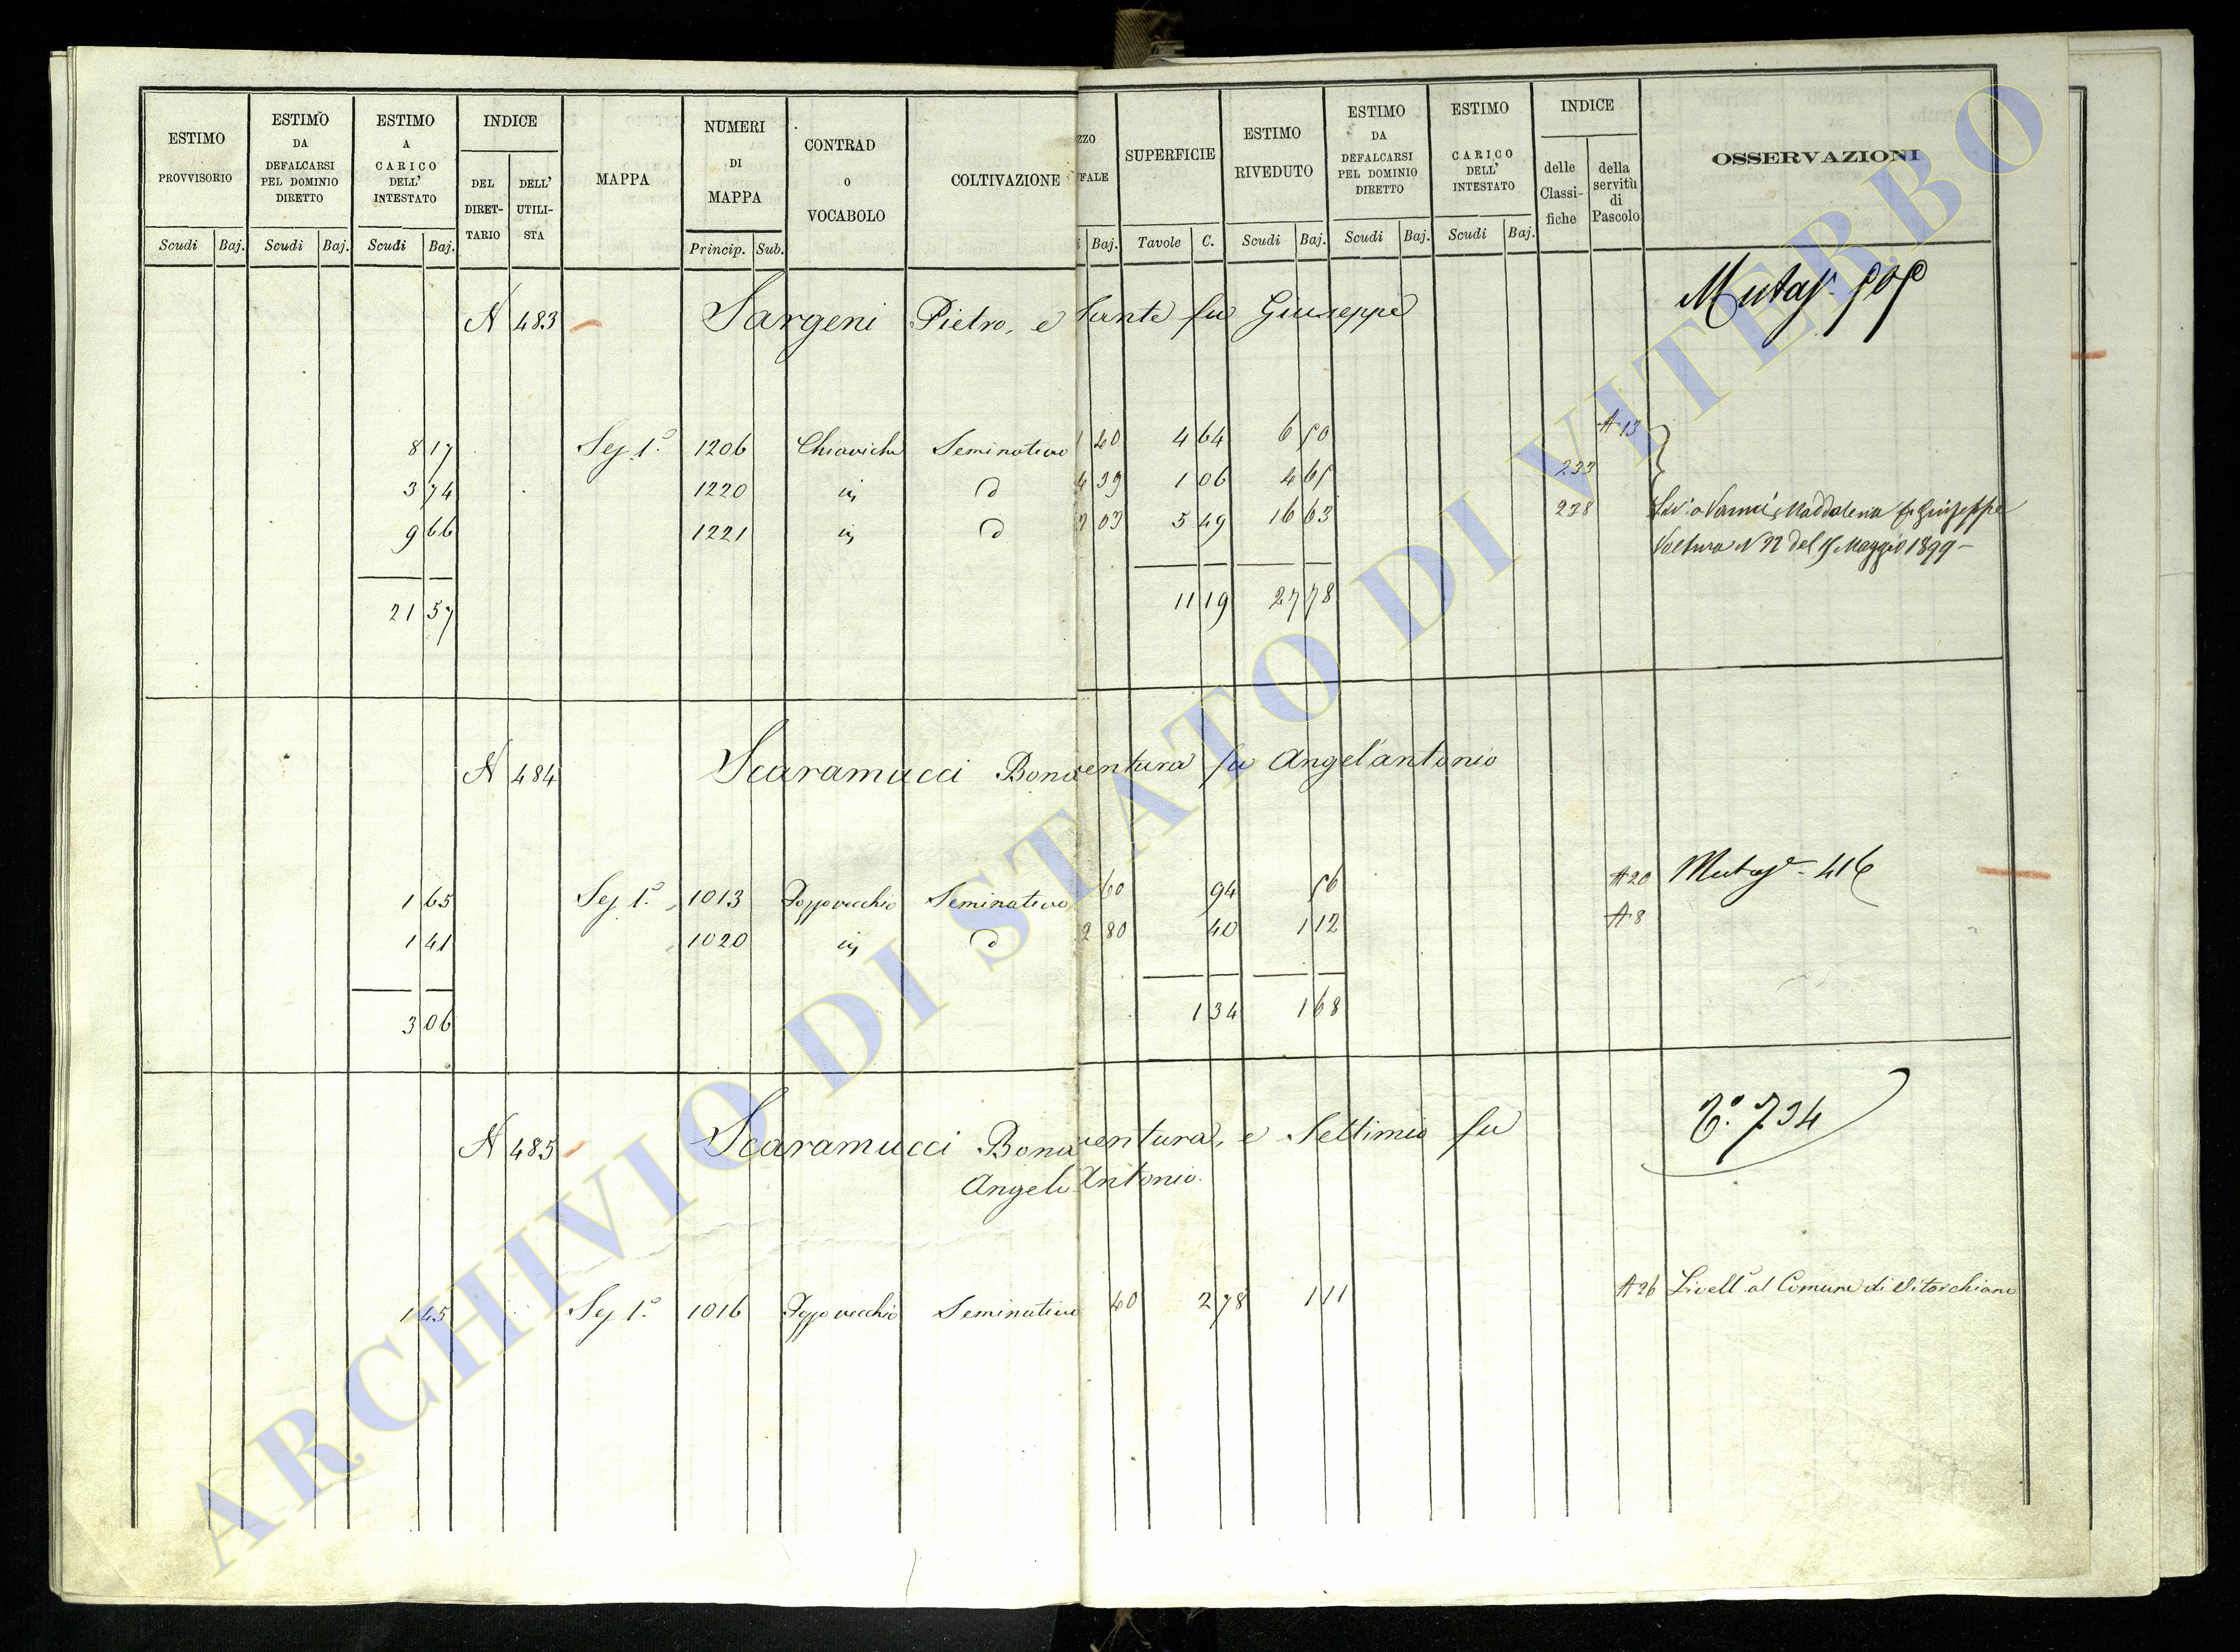 ESTIMO PROVVISORIO Scudi Baj.
ESTIMO DA DEFALCARSI PEL DOMINIO DIRETTO Scudi Baj.
ESTIMO A CARICO DELL' INTESTATO Scudi Baj.
INDICE DEL DIRET-TARIO DELL' UTILI-STA
MAPPA
NUMERI DI MAPPA Princip. Sub.
CONTRAD O VOCABOLO
COLTIVAZIONE
ZZO FALE Baj.
SUPERFICIE Tavole C.
ESTIMO RIVEDUTO Scudi Baj.
ESTIMO DA DEFALCARSI PEL DOMINIO DIRETTO Scudi Baj.
ESTIMO CARICO DELL' INTESTATO Scudi Baj.
INDICE delle Classi-fiche della servitù di Pascolo
OSSERVAZIONI
N 483 Sargeni Pietro, e Sante fu Giuseppe
8 17 Sez 1ª 1206 Chiaviche Seminativo 1 40 4 64 6 50 A 13
3 74 1220 d 4 39 1 06 4 65 233
9 66 1221 d 3 03 5 49 16 63 238
Vanni Maddalena fu Giuseppe
Voltura N del Maggio 1899
21 57 11 19 27 78
N 484 Scaramucci Bonaventura fu Angel'antonio
1 65 Sez 1ª 1013 Pozzovecchio Seminativo 60 94 56 A 20 416
1 41 1020 d 2 80 40 1 12 A 8
3 06 1 34 1 68
N 485 Scaramucci Bonaventura, e Settimio fu
Angelo Antonio
1 45 Sez 1ª 1016 Pozzovecchio Seminativo 40 2 78 1 11 A 26 Livellº al Comune di Vitorchiano
ARCHIVIO DI STATO DI VITERBO